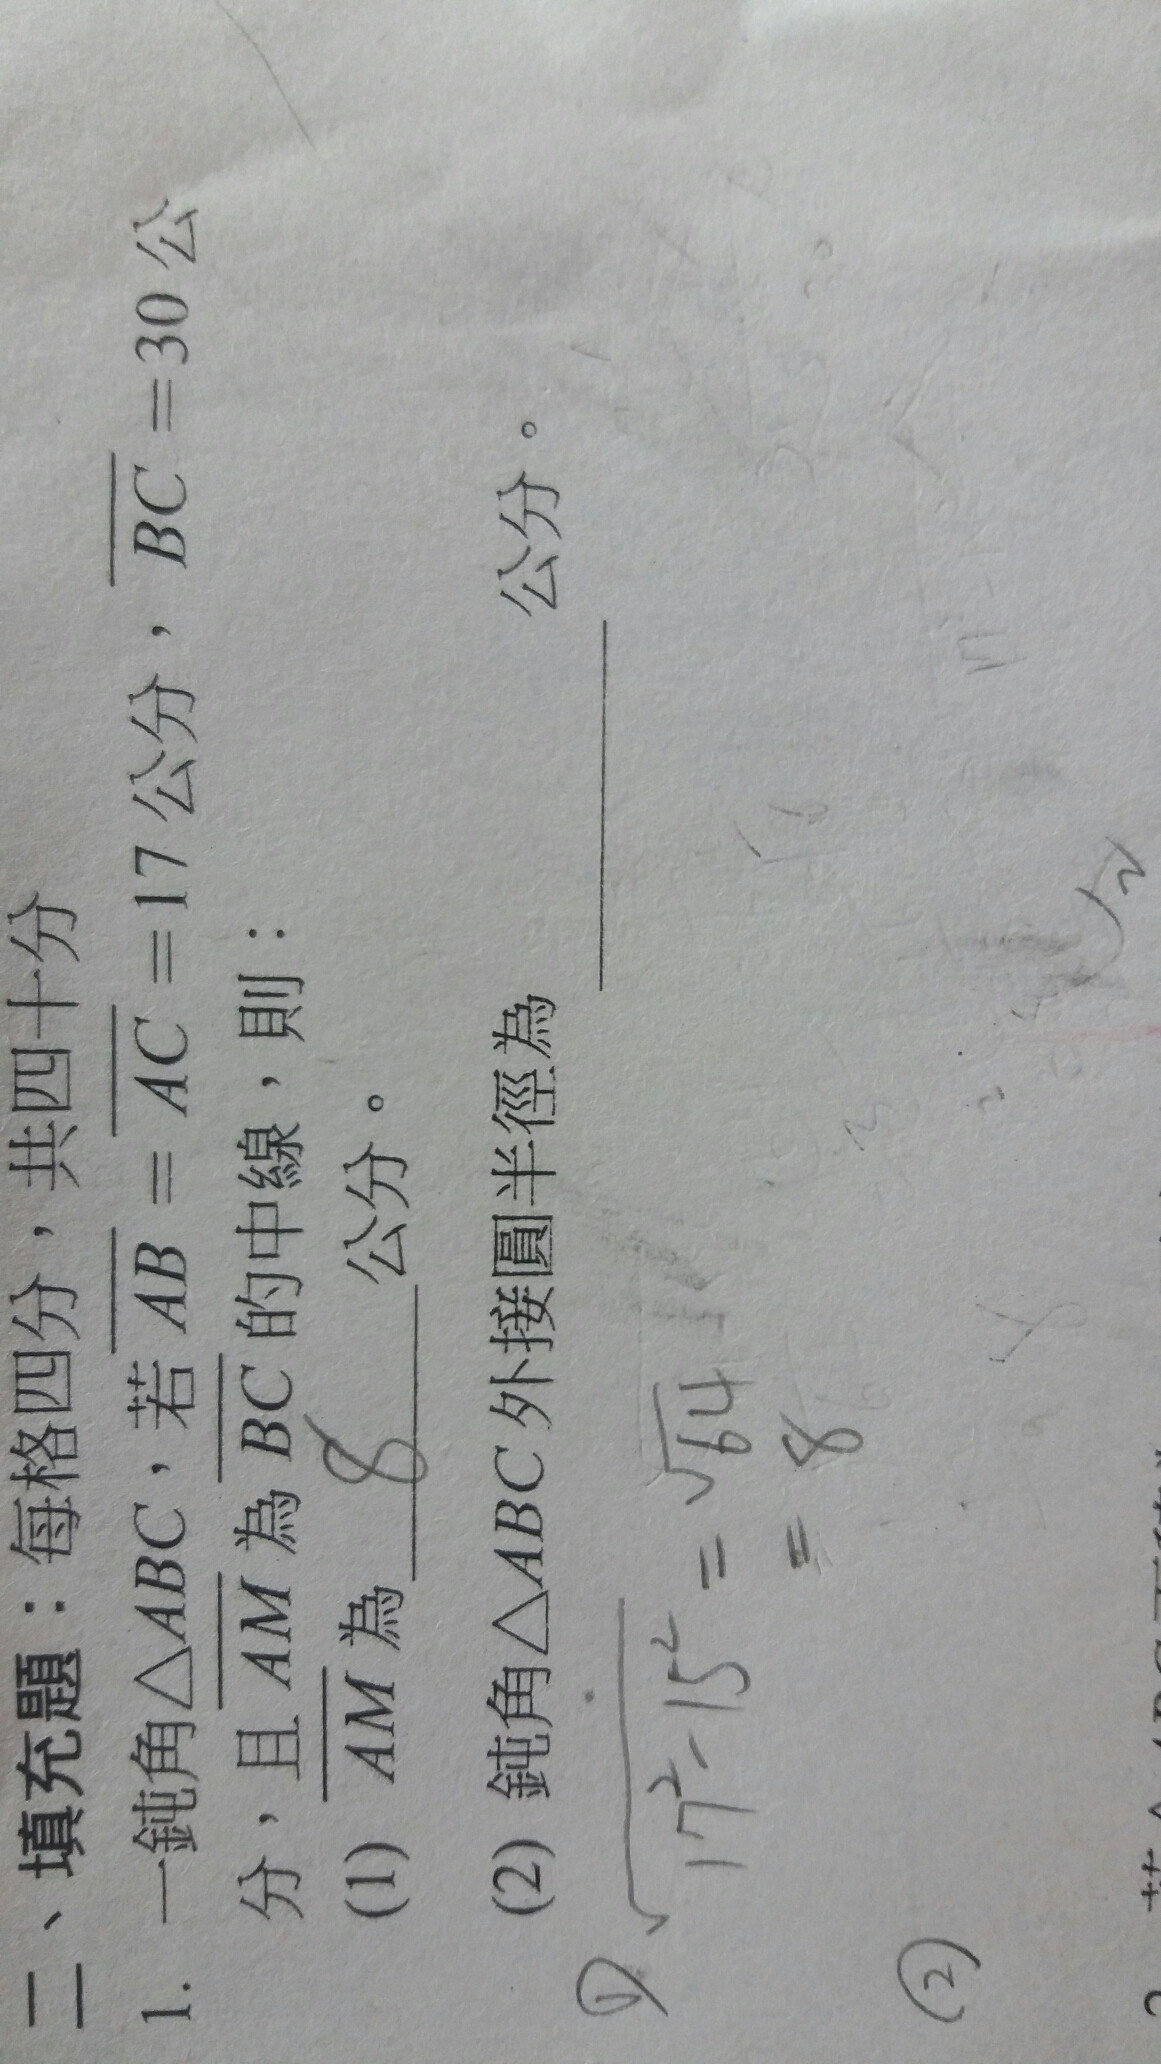 二、填充題：每格四分，共四十分
1. 一鈍角△ABC，若 AB = AC =17 公分，BC =30 公
分，且 AM 為 BC 的中線，則：
(1) AM 為 8 公分。
(2) 鈍角△ABC 外接圓半徑為 公分。
① √17²-15² = √64
= 8
②